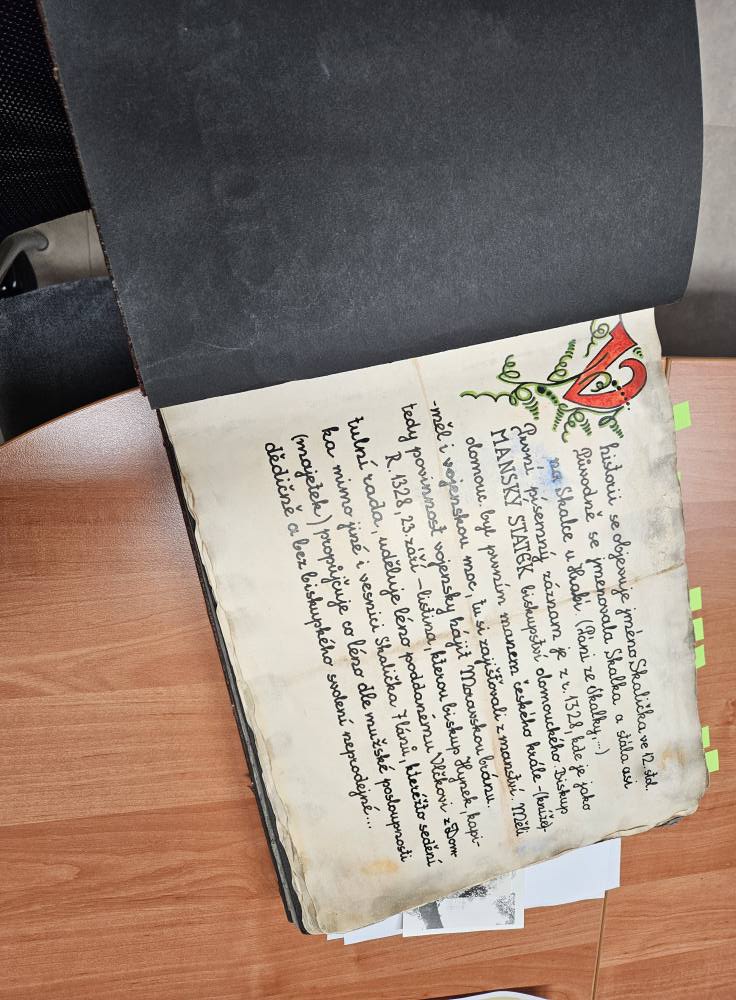 V historii se objevuje jméno Skalička ve 12. stol.
Původně se jmenovala Skalka a stála asi
na Skalce u Hrabí. (Páni ze Skalky,...)
První písemný záznam je z r. 1328, kde je jako
MANSKÝ STATEK biskupství olomouckého. Biskup
olomouc. byl prvním manem českého krále -(kníže)-
-měl i vojenskou moc, tu si zajišťovali z manství. Měli
tedy povinnost vojensky hájit Moravskou bránu.
R. 1328, 23. září - listina, kterou biskup Hynek, kapi-
tulní rada, uděluje léno poddanému Vlčkovi z Dom-
ka mimo jiné i vesnici Skalička 7 lánů, kteréžto sedění
(majetek) propůjčuje co léno dle mužské posloupnosti
dědičně a bez biskupkého svolení neprodejné...